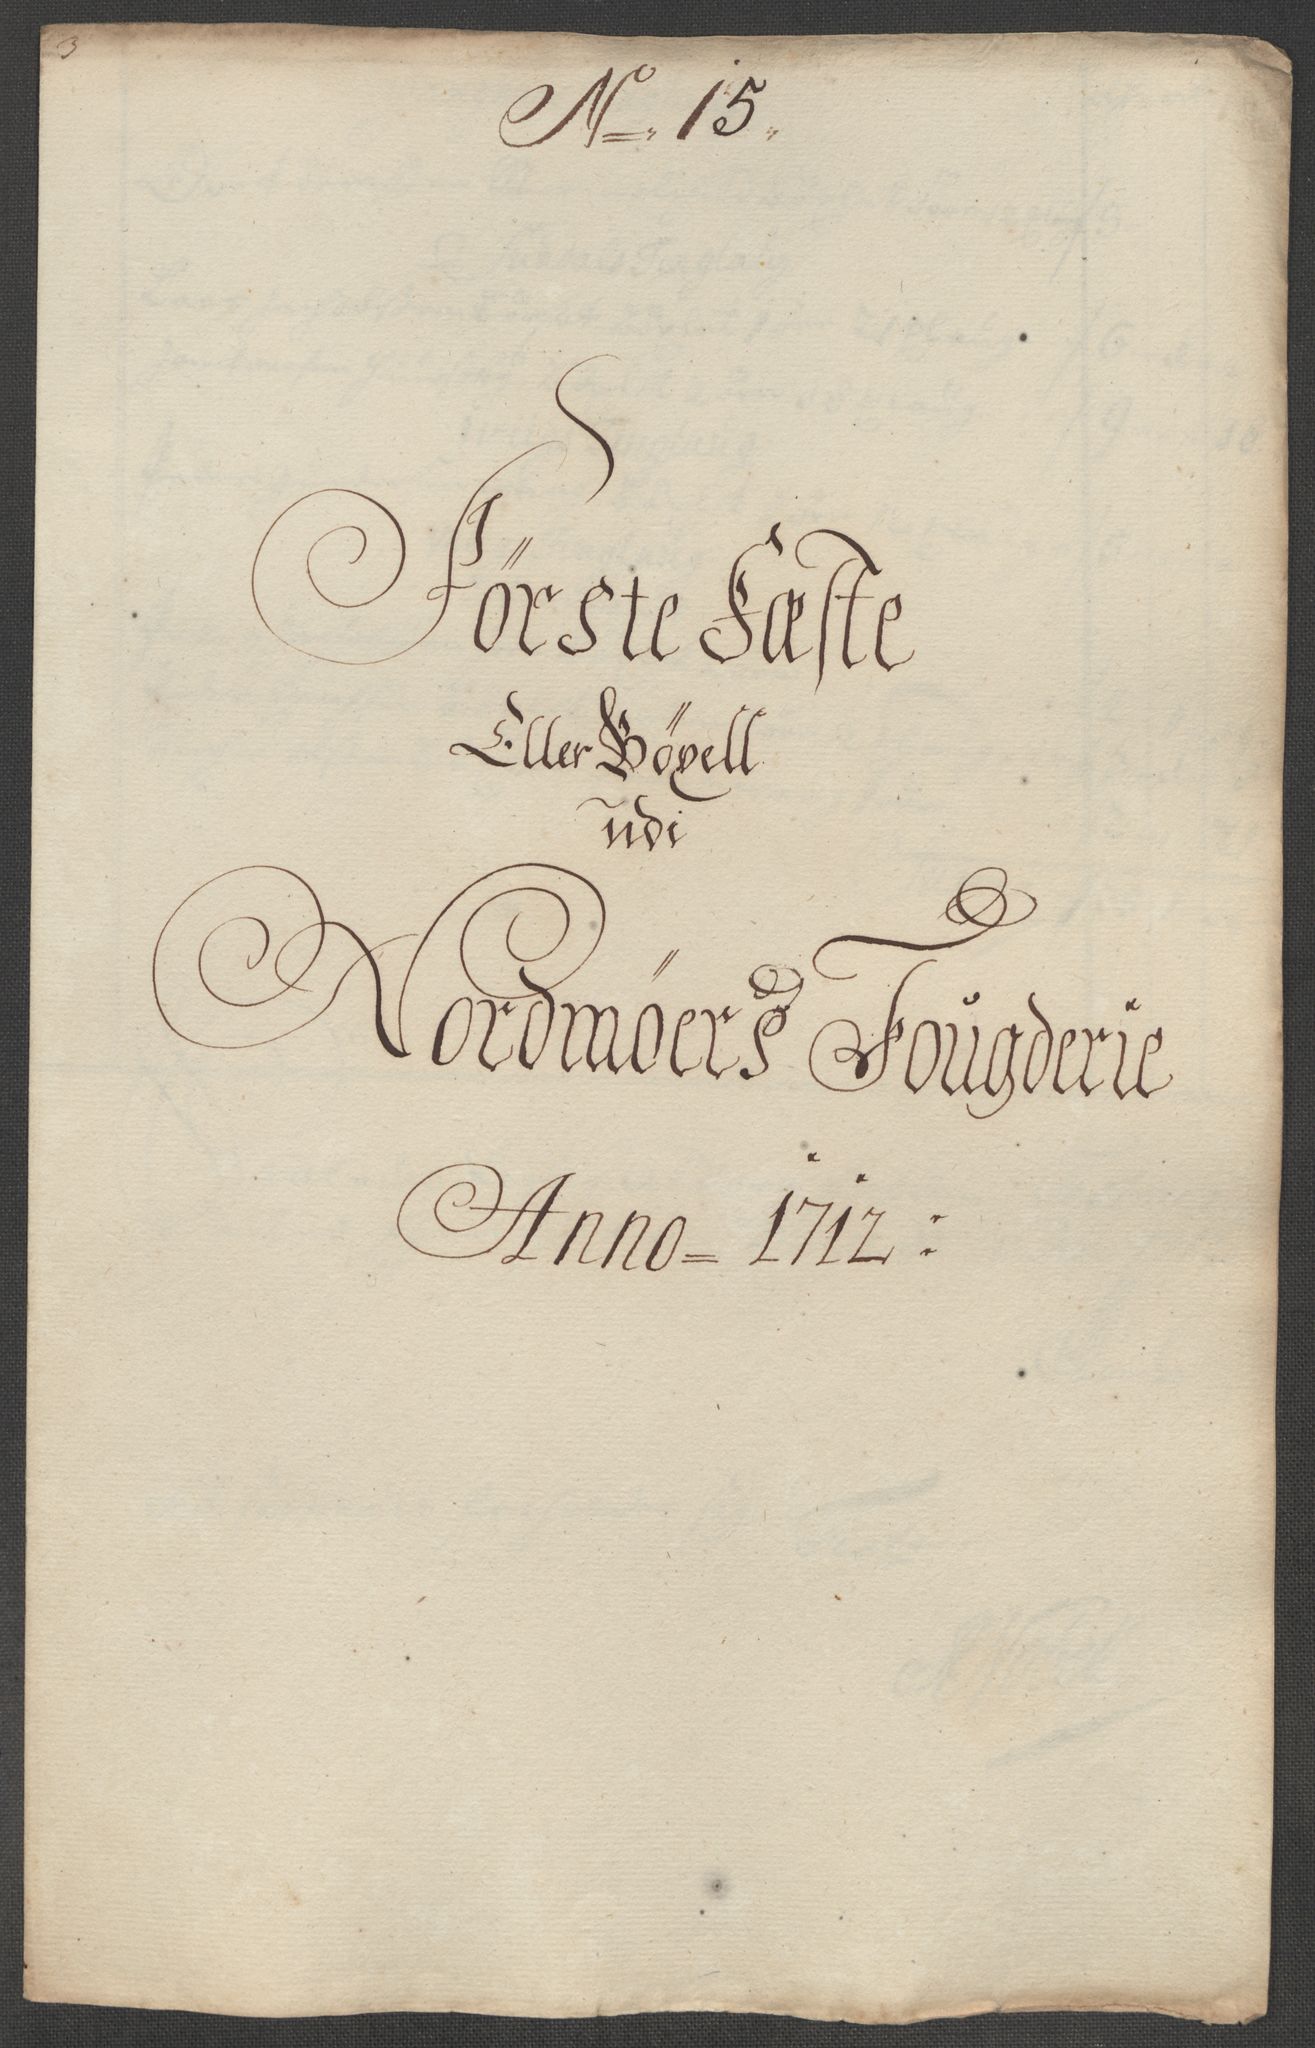 3
No. 15.
Förste Fæste
Eller Böxell
udi
Nordmöers Fougderie
Anno= 1712: